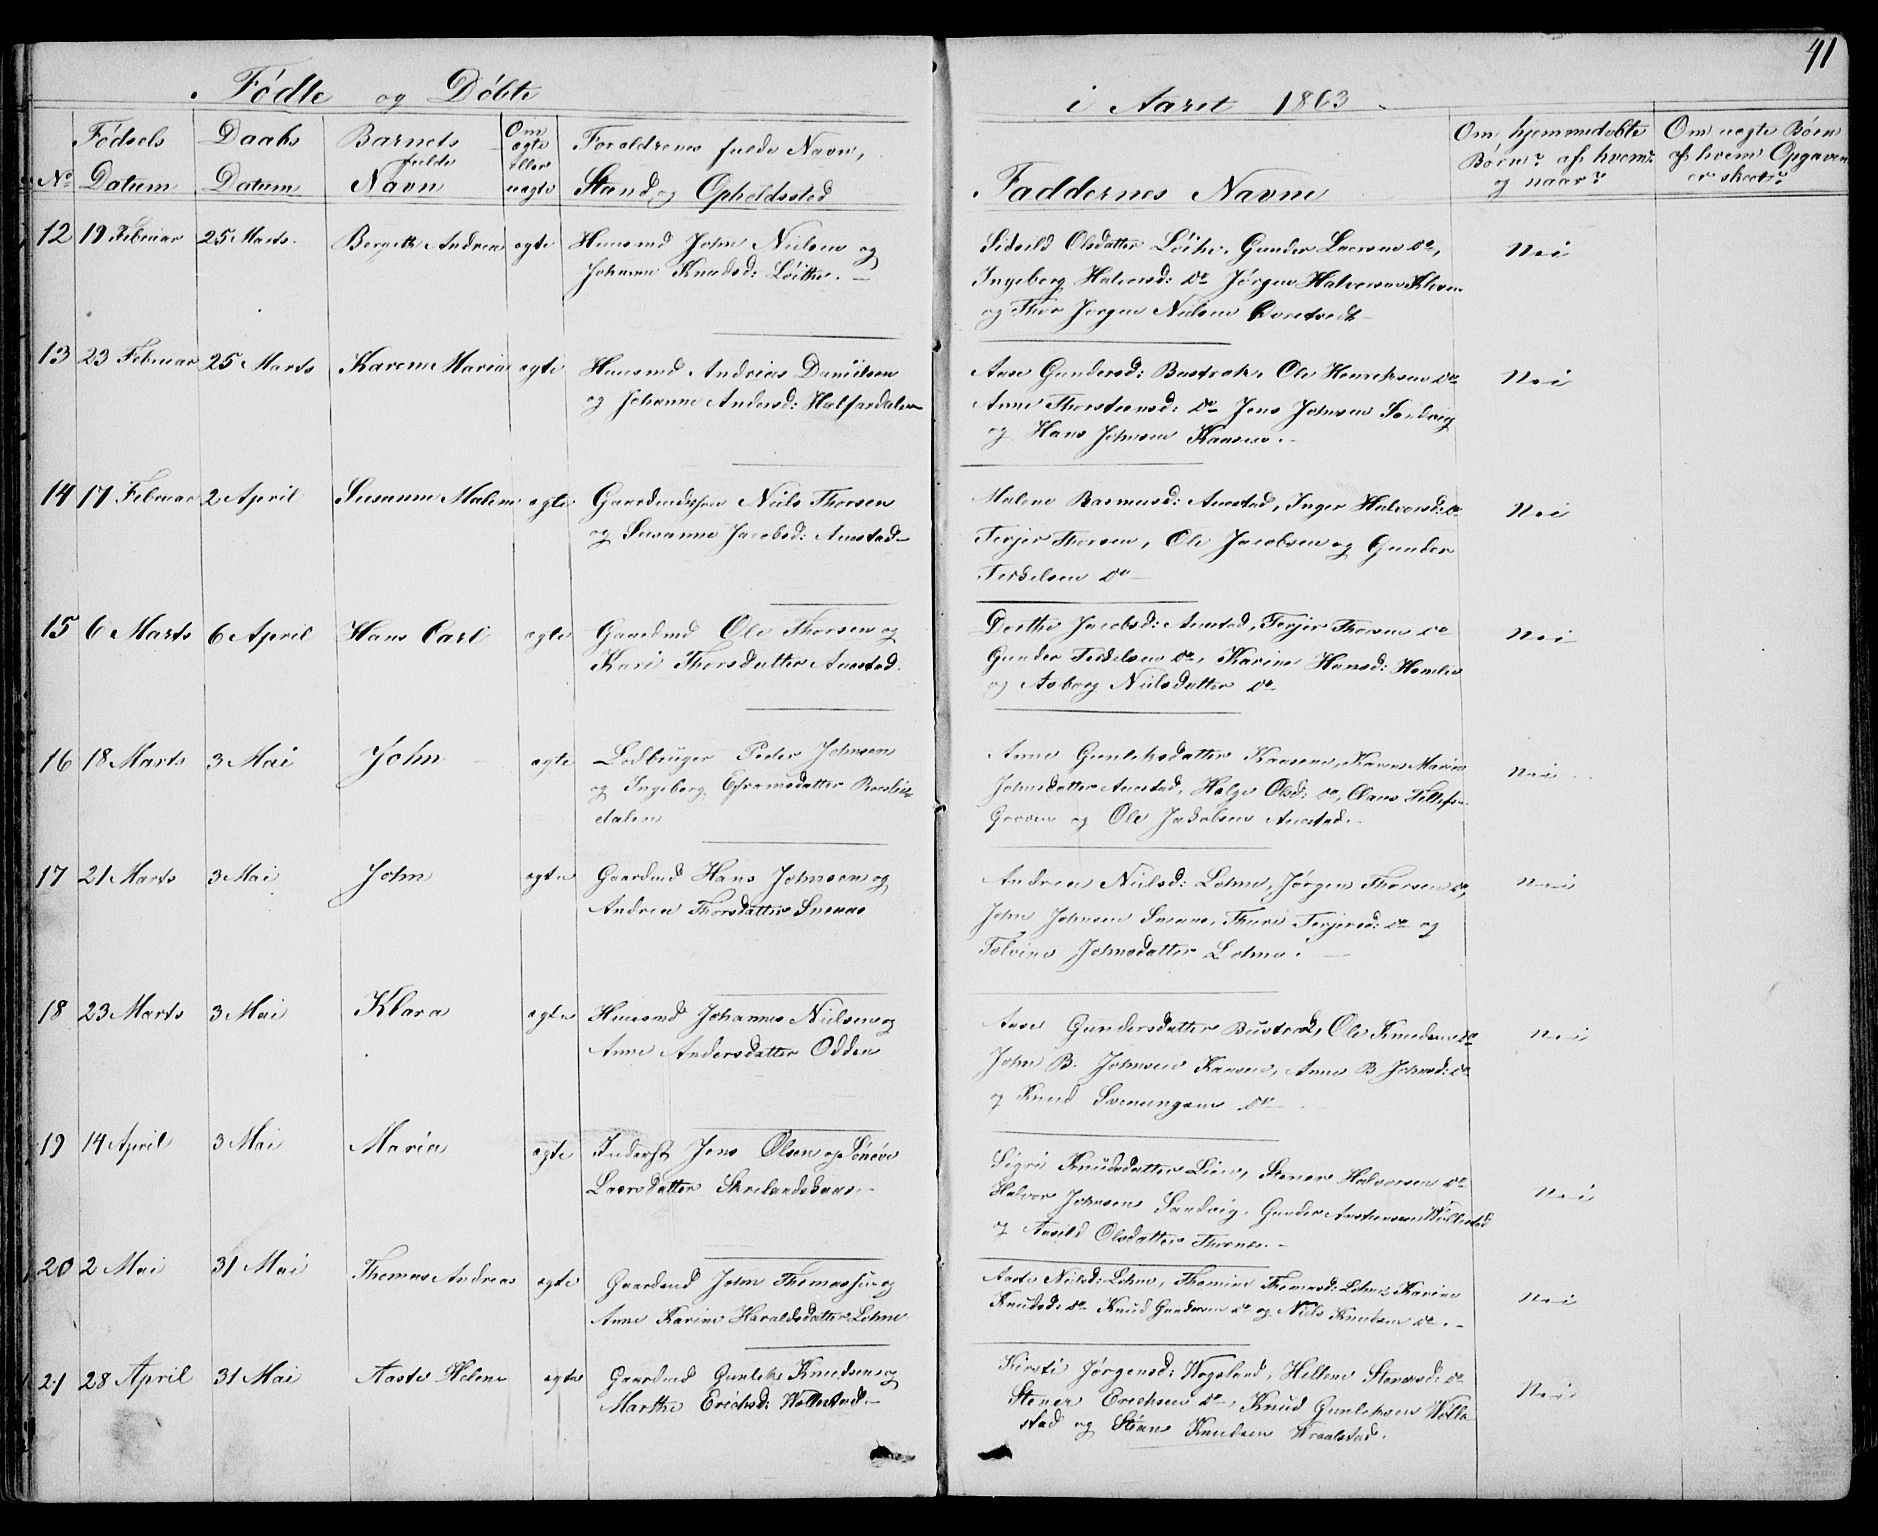 41
Fødte og Døbte
i Aaret 1863
No
Fødsels Datum
Daabs Datum
Barnets fulde Navn
Om ægte eller uægte
Forældrenes fulde Navn,
Stand og Opholdssted
Faddernes Navne
Om hjemmedøbte
Børn? af hvem?
og naar?
Om uægte Børn
af hvem Opgaven
er skeet?
12 19 Februar 25 Marts. Bergith Andrea ægte Huusmd John Nielsen og
Johanne Knudsd: Løithe.
Sidseld Olsdatter Løithe, Gunder Larsen do,
Ingeborg Halvorsd: do Jørgen Halvorsen Kleven
og Thor Jørgen Nielsen
Nei
13 23 Februar 25 Marts Karen Maria ægte Huusmd Andreas Danielsen
og Johanne Andersd: Halfardalen
Aase Gundersd: Bustrak, Ole Henriksen do
Anne Thorstensd: do Jens Johnsen Sandvig
og Hans Johnsen Kaasen.
Nei
14 17 Februar 2 April Susanne Malene ægte Niels Thorsen
og Susanne Jacobsd: Austad
Malene Rasmusd: Austad, Inger Halvorsd: do
Terjer Thorsen, Ole Jacobsen og Gunder
Terkelsen do
Nei
15 6 Marts 6 April Hans Carl ægte Gaardmd Ole Thorsen og
Kari Thorsdatter Austad.
Dorthe Jacobsd: Austad, Terjer Thorsen do
Gunder Terkelsen do, Karine Hansd: Homlev
og Asborg Nielsdatter do
Nei
16 18 Marts 3 Mai John ægte Lodbruger Peder Johnsen
og Ingeborg Eframsdatter
dalen
Anne Gunleksdatter Kaasene, Karen Marie
Johnsdatter Austad, Helge Olsd: do, Claus Tellefsen
Groven og Ole Jakobsen Austad.
Nei
17 21 Marts 3 Mai John ægte Gaardmd Hans Johnsen og
Andrea Thorsdatter Snenæs
Andrea Nielsd: Lohne, Jørgen Thorsen do,
John Johnsen Snenæs, Thuri Terjersd: do og
Tolvine Johnsdatter Lohne.
Nei
18 23 Marts 3 Mai Klara ægte Huusmd Johannes Nielsen og
Anne Andersdatter Odden
Aase Gundersdatter Bustrak, Ole Knudsen do
John B. Johnsen Kaasen, Anne B Johnsd: do
og Knud Svenungsen do
Nei
19 14 April 3 Mai Maria ægte Inderst Jens Olsen og Sønove
Laersdatter Skrelandshaven
Sigri Knudsdatter Lien, Stener Halvorsen do
Halvor Johnsen Sandvig, Gunder Austensen Wollestad
og Aaseld Olsdatter Thornes.
Nei
20 2 Mai 31 Mai Thomas Andreas ægte Gaardmd John Thomassen og
Anne Karine Haraldsdatter Lohne
Aaste Nielsd: Lohne, Thomine Thomasd: Lohne, Karine
Knudsd: do Knud Gundersen do og Niels Knudsen do.
Nei
21 28 April 31 Mai Aaste Helene ægte Gaardmd Gunlek Knudsen og
Marthe Erichsd: Wollestad
Kirsti Jørgensd: Wogsland, Hellene Stenersd: do
Stener Erichsen do, Knud Gunleksen Wolle
stad og Stian Knudsen Wraalstad.
Nei